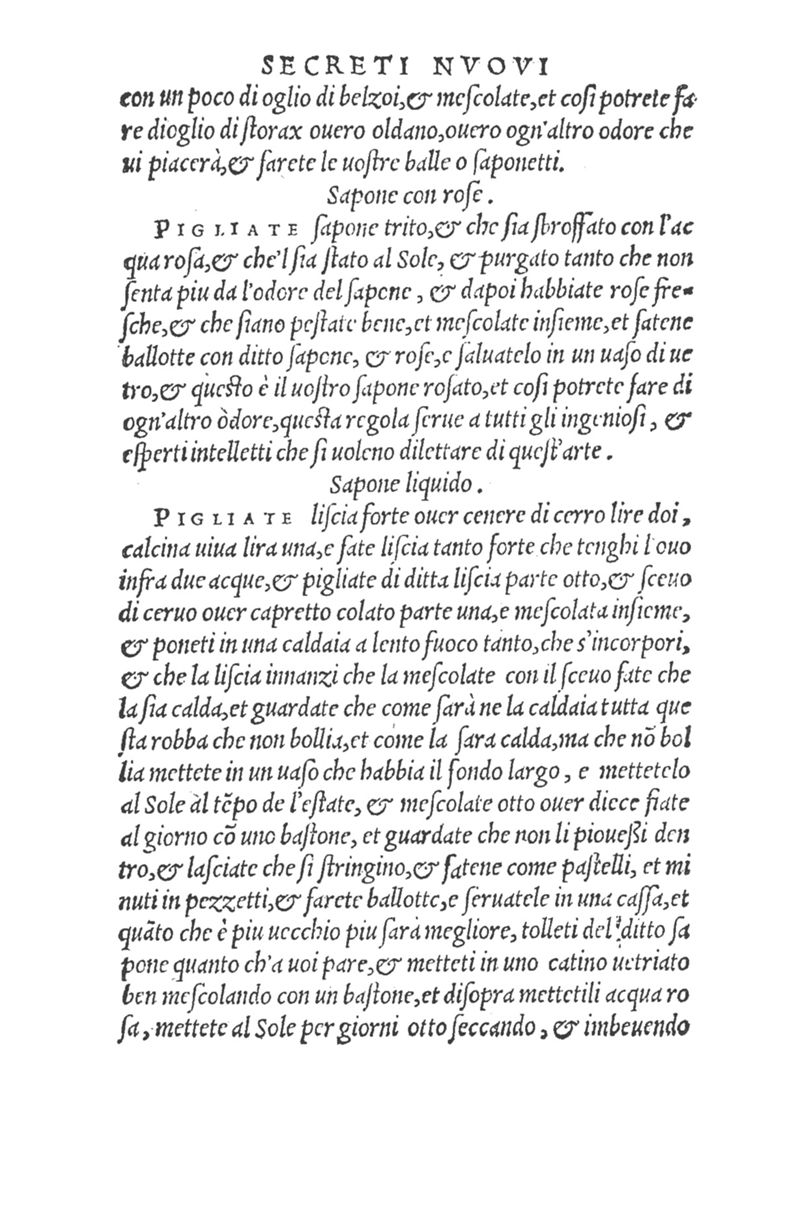 SECRETI NVOVI
con un poco di oglio di belzoi,& meſcolate,et coſi potrete fa
re dioglio di ſtorax ouero oldano,ouero ogn'altro odore che
ui piacerà,& farete le uoſtre balle o ſaponetti.
Sapone con roſe.
PIGLIATE ſapone trito,& che ſia ſbroffato con l'ac
qua roſa,& che'l ſia ſtato al Sole, & purgato tanto che non
ſenta piu da l'odore del ſapone , & dapoi habbiate roſe fre-
ſche,& che ſiano peſtate bene,et meſcolate inſieme,et fatene
ballotte con ditto ſapone, & roſe,e ſaluatelo in un uaſo di ue
tro,& queſto è il uoſtro ſapone roſato,et coſi potrete fare di
ogn'altro òdore,queſta regola ſerue a tutti gli ingenioſi , &
eſperti intelletti che ſi uoleno dilettare di queſt'arte .
Sapone liquido .
PIGLIATE liſcia forte ouer cenere di cerro lire doi ,
calcina uiua lira una,e fate liſcia tanto forte che tenghi l ouo
infra due acque,& pigliate di ditta liſcia parte otto,& ſceuo
di ceruo ouer capretto colato parte una,e meſcolata inſieme,
& poneti in una caldaia a lento fuoco tanto,che s'incorpori,
& che la liſcia innanzi che la meſcolate con il ſceuo fate che
la ſia calda,et guardate che come ſarà ne la caldaia tutta que
ſta robba che non bollia,et come la ſara calda,ma che nō bol
lia mettete in un uaſo che habbia il fondo largo , e mettetelo
al Sole àl tēpo de l'eſtate, & meſcolate otto ouer diece fiate
al giorno cō uno baſtone, et guardate che non li pioueßi den
tro,& laſciate che ſi ſtringino,& fatene come paſtelli, et mi
nuti in pezzetti,& farete ballotte,e ſeruatele in una caſſa,et
quāto che è piu uecchio piu ſarà megliore, tolleti del ditto ſa
pone quanto ch'a uoi pare,& metteti in uno catino uetriato
ben meſcolando con un baſtone,et diſopra mettetili acqua ro
ſa, mettete al Sole per giorni otto ſeccando , & imbeuendo